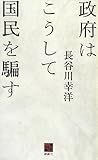 政府は
こうして
国民を騙す
長谷川幸洋